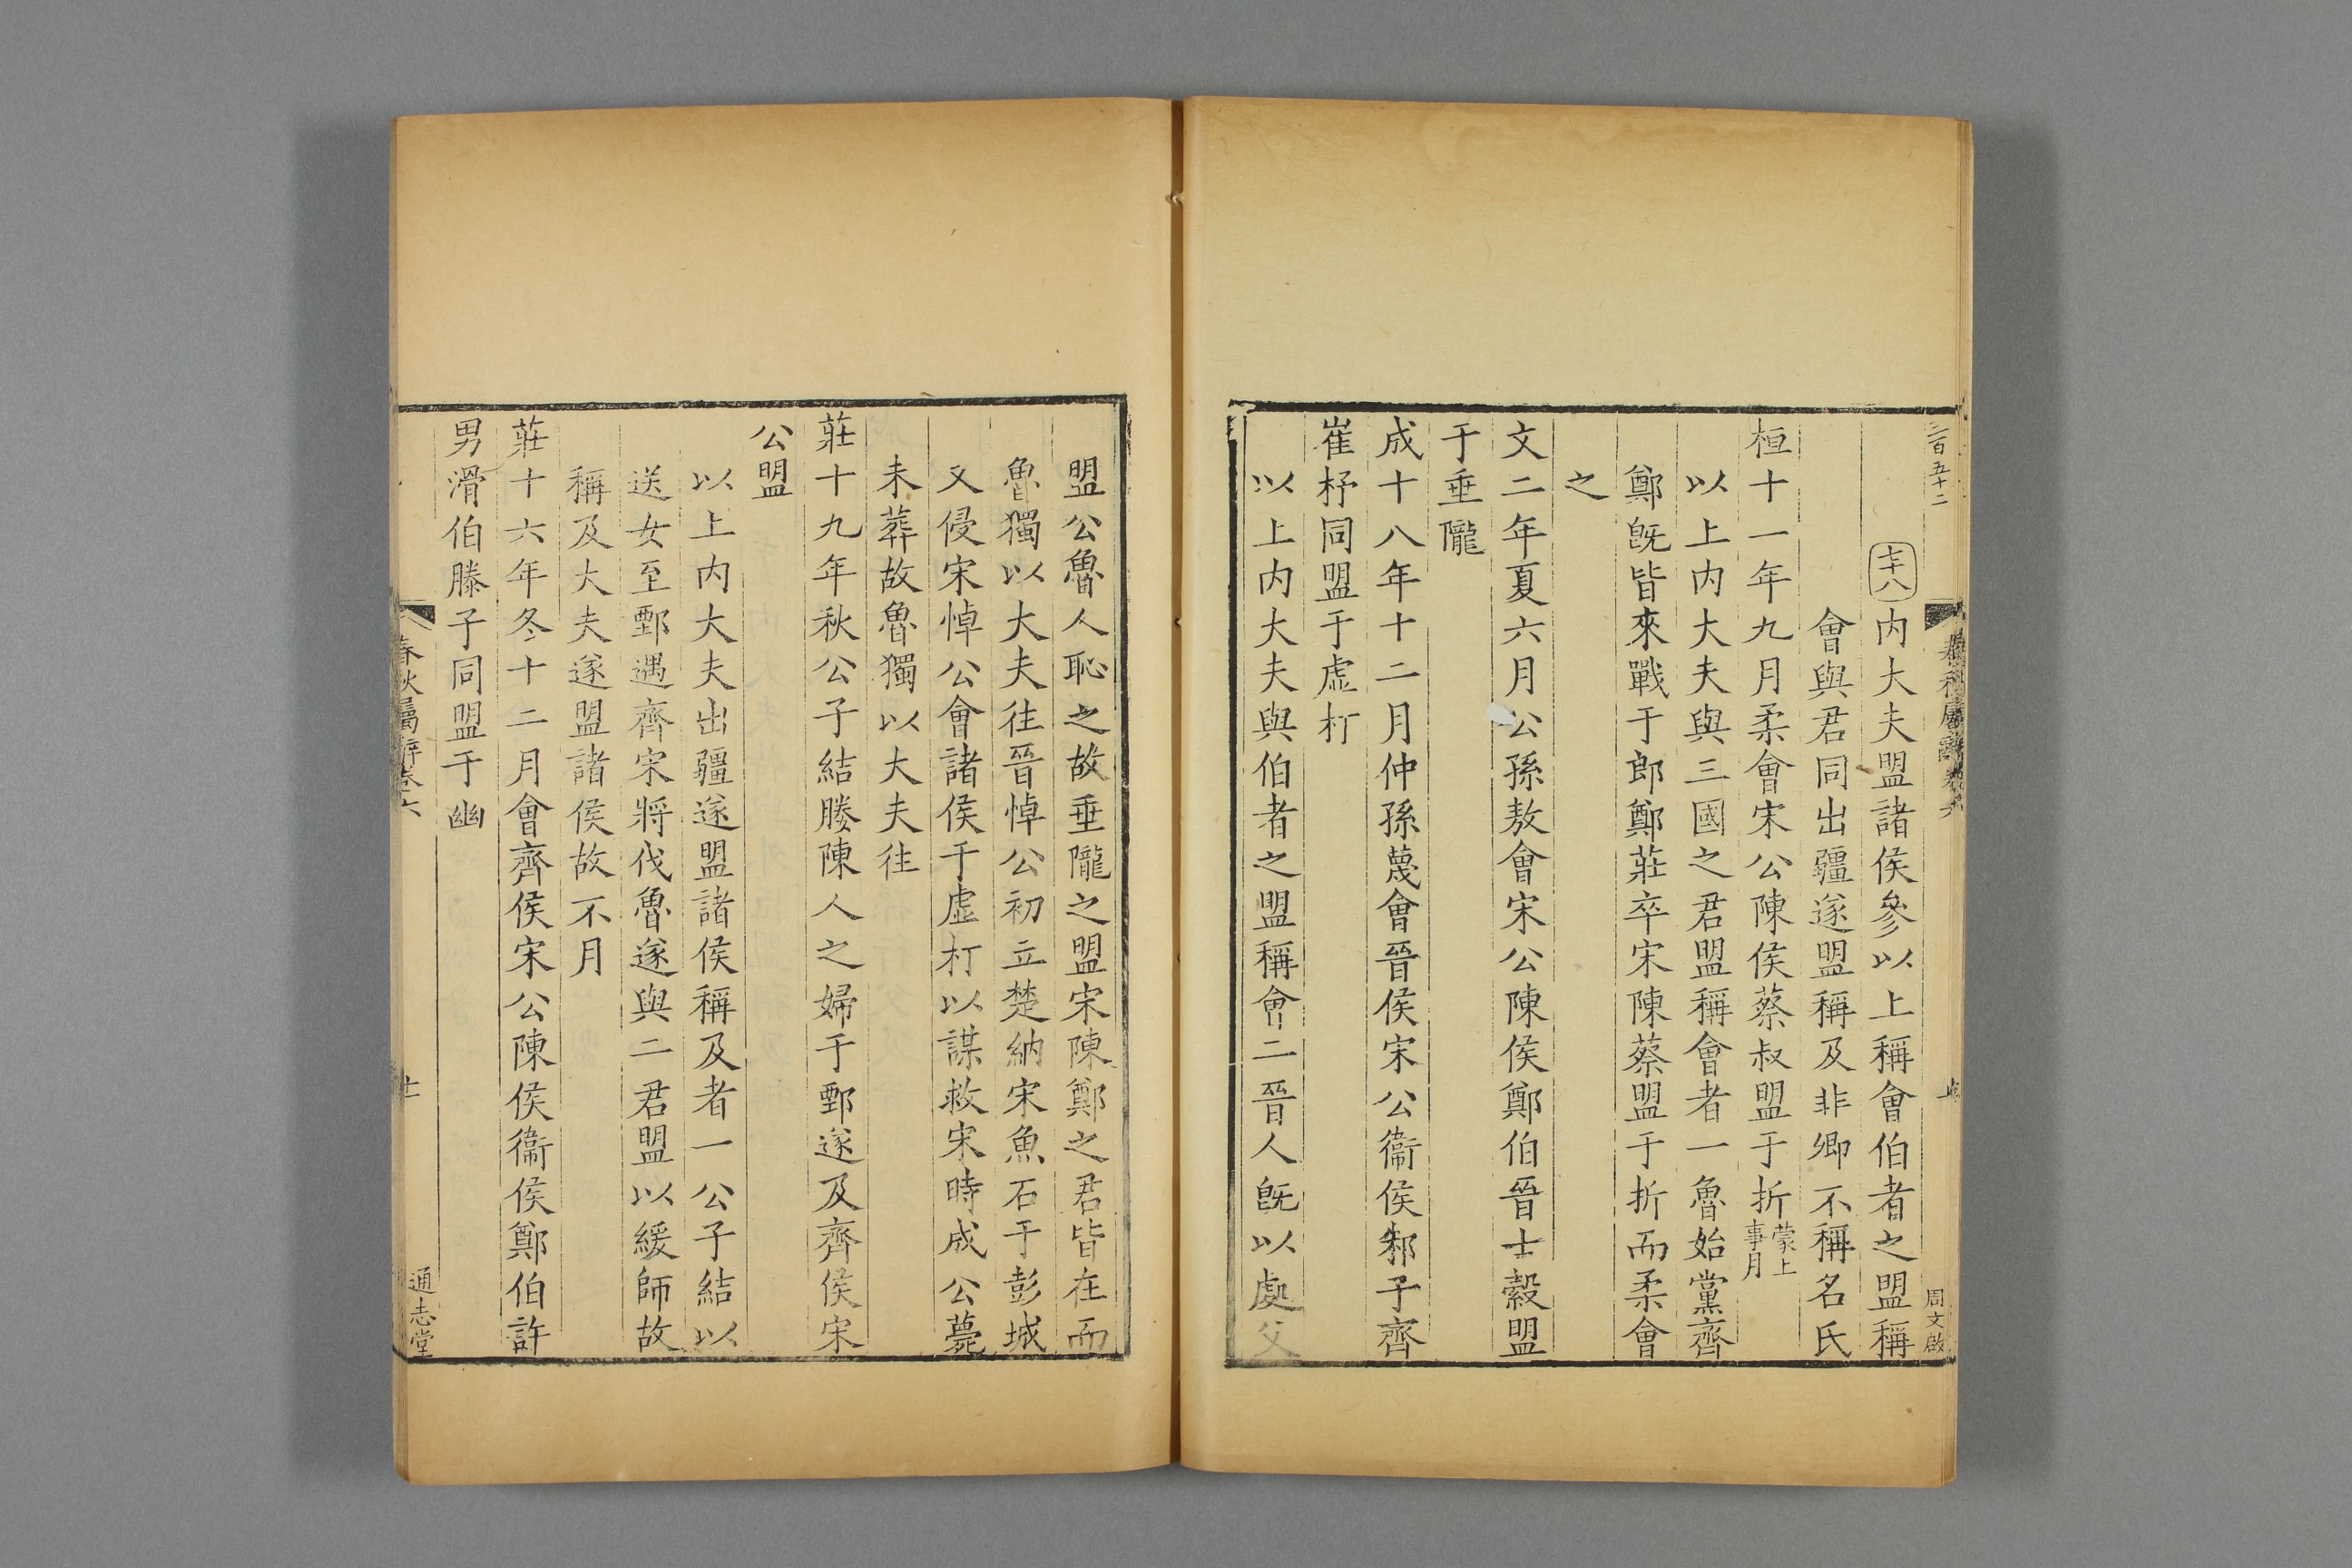 三百五十二
春秋屬辭卷六
周文啟
七十八 内大夫盟諸侯參以上稱會伯者之盟稱
會與君同出疆遂盟稱及非卿不稱名氏
桓十一年九月柔會宋公陳侯蔡叔盟于折蒙上事月
以上内大夫與三國之君盟稱會者一魯始黨齊
鄭旣皆來戰于郎鄭莊卒宋陳蔡盟于折而柔會
之
文二年夏六月公孫敖會宋公陳侯鄭伯晉士縠盟
于垂隴
成十八年十二月仲孫蔑會晉侯宋公衞侯邾子齊
崔杼同盟于虛朾
以上内大夫與伯者之盟稱會二晉人旣以處父
盟公魯人恥之故垂隴之盟宋陳鄭之君皆在而
魯獨以大夫往晉悼公初立楚納宋魚石于彭城
又侵宋悼公會諸侯于虛朾以謀救宋時成公薨
未葬故魯獨以大夫往
莊十九年秋公子結媵陳人之婦于鄄遂及齊侯宋
公盟
以上内大夫出疆遂盟諸侯稱及者一公子結以
送女至鄄遇齊宋將伐魯遂與二君盟以緩師故
稱及大夫遂盟諸侯故不月
莊十六年冬十二月會齊侯宋公陳侯衞侯鄭伯許
男滑伯滕子同盟于幽
春秋屬辭卷六
七
通志堂